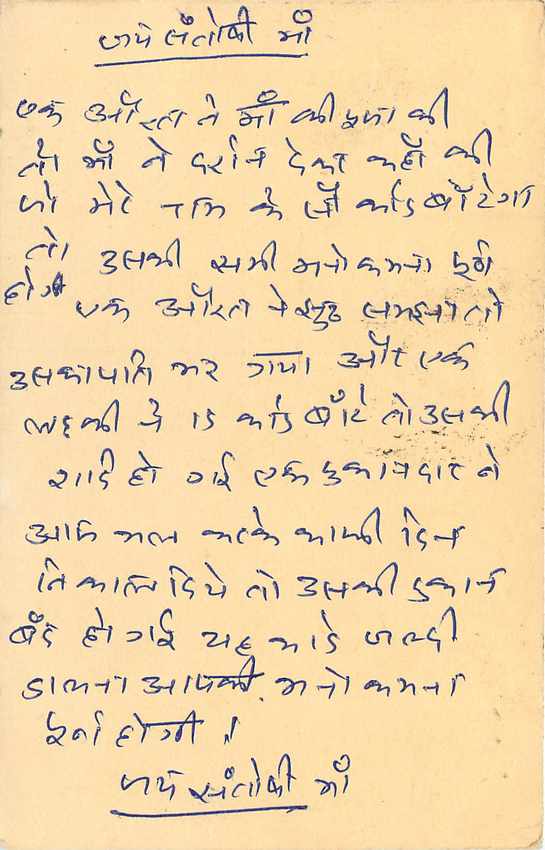 जय संतोषी माँ
एक औरत ने माँ की पुजा की
तो माँ ने दर्शन देकर कहाँ की
जो मेरे नाम के सौ कार्ड बाँटेगा
तो उसकी सभी मनोकामना पुर्ण
होगी एक औरत ने झुठ समझा तो
उसका पति मर गया और एक
लड़की ने 15 कार्ड बाँटे तो उसकी
शादि हो गई एक दुकानदार ने
आज कल करके काफी दिन
निकाल दिये तो उसकी दुकान
बँद हो गई यह कार्ड जल्दी
डालना आपकी मनोकामना
पुर्ण होगी ।
जय संतोषी माँ